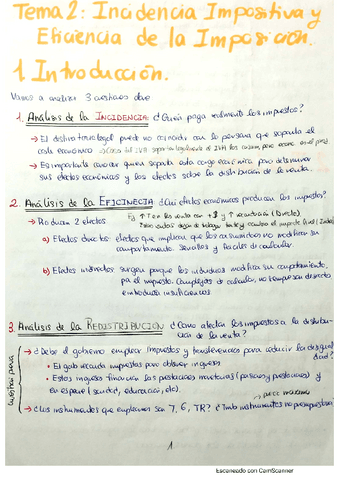 Tema 2: Incidencia Impositiva y
Eficiencia de la Imposición.
1. Introducción.
Vamos a analizar 3 cuestiones clave
1. Análisis de la INCIDENCIA: ¿Quién paga realmente los impuestos?
→ El destinatario legal puede no coincidir con la persona que soporta el
coste económico
→ Es importante conocer quien soporta esta carga económica para determinar
sus efectos económicos y los efectos sobre la distribución de la renta.
2. Análisis de la EFICIENCIA ¿Qué efectos económicos producen los impuestos?
→ Producen 2 efectos
a) Efectos directos: efectos que implican que los consumidores no modifican su
comportamiento. Sencillos y fáciles de calcular.
b) Efectos indirectos surgen porque los individuos modifican su comportamiento
por el impuesto. Complejos de calcular, no tiempo son directo
e introduce ineficiencias
3. Análisis de la REDISTRIBUCIÓN ¿Cómo afectan los impuestos a la distribu-
ción de la renta?
→ ¿Debe el gobierno emplear impuestos y transferencias para reducir la desigual
dad?
• El gob recauda impuestos para obtener ingresos
• Estos ingresos financian las prestaciones monetarias (pensiones y prestaciones) y
en especie (sanidad, educación, etc).
→ ¿Qué instrumentos que emplearemos son T, G, TR? ¿Tmb instrumentos no presupuestarios?
1
Escaneado con CamScanner